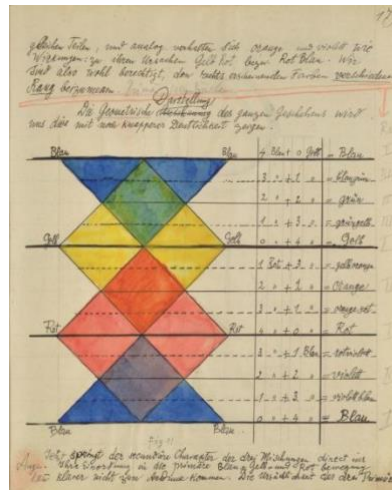 17
gleichen Teilen, und analog verhalten sich orange und violett wie
Wirkungen zu ihren Ursachen Gelb Rot bezw. Rot Blau. Wir
sind also wohl berechtigt, den rechts erscheinenden Farben verschiedenen
Rang beizumessen.
Darstellung
Die Geometrische des ganzen Geschehens wird
uns dies mit noch knapperer Deutlichkeit zeigen.
Blau Blau 4 Blau + 0 Gelb = Blau
3 " + 1 " = blaugrün
2 " + 2 " = grün
1 " + 3 " = grüngelb
Gelb Gelb 0 " + 4 " = Gelb
1 Rot + 3 " = gelborange
2 " + 2 " = orange
3 " + 1 " = orange rot
Rot Rot 4 " + 0 " = Rot
3 " + 1 Blau = rotviolett
2 " + 2 " = violett
1 " + 3 " = violettblau
Blau Blau 0 " + 4 " = Blau
Jetzt springt der secundäre Charakter der drei Mischungen direct ins
Auge. Ihre Einordnung in die primäre Blau, Gelb und Rot bewegung
klarer nicht zum Ausdruck kommen. Die